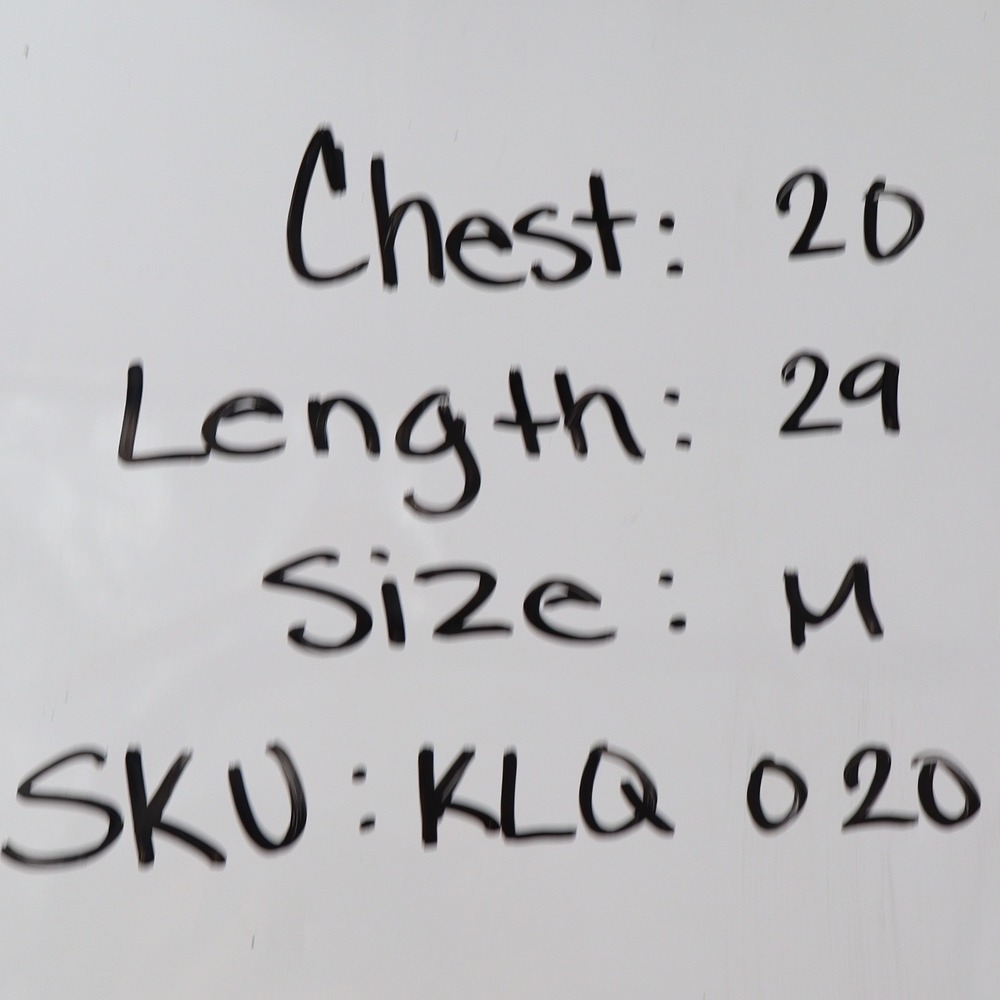 Chest: 20
Length: 29
Size: M
SKU: KLQ 020